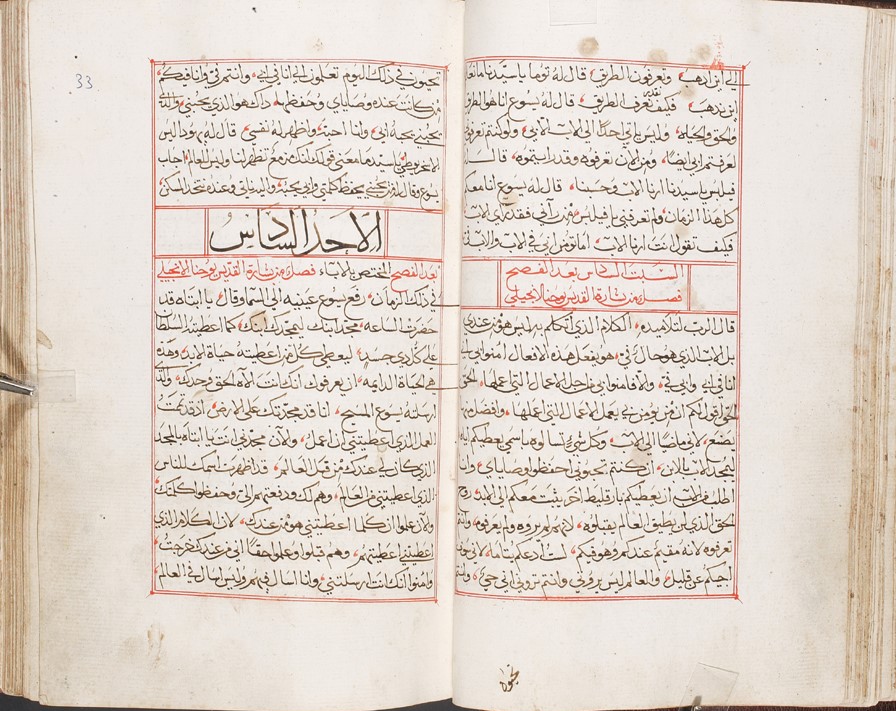 الي اين اذهب وتعرفون الطريق قال له توما يا سيدنا ما نعلم
اين تذهب فكيف نقدر نعرف الطريق قال له يسوع انا هو الطريق
والحق والحياه وليس ياتي احدا الي الاب الا بي ولو كنتم تعرفوني
لعرفتم ابي ايضا ومن الان تعرفوه وقد رايتموه قال له
فيلبس يا سيدنا ارنا الاب وحسبنا قال له يسوع انا معكم
كل هذا الزمان ولم تعرفني يا فيلبس من راني فقد راي الاب
فكيف تقول انت ارنا الاب اما تومن اني في الاب والاب في
السبت السادس بعد الفصح
فصل من بشارة القديس يوحنا الانجيلي
قال الرب لتلاميذه الكلام الذي اتكلم به ليس هو من عندي
بل الاب الذي هو حال في هو يفعل هذه الافعال امنوا بي
انا في ابي وابي في والا فامنوا بي من اجل الاعمال التي اعملها الحق
الحق اقول لكم ان من يومن بي يعمل الاعمال التي اعملها وافضل منها
يصنع لاني ماضيا الي الاب وكل شي تسالوه باسمي يعطيكم اياه
ليتمجد الاب بالابن ان كنتم تحبوني احفظوا وصاياي وانا
اطلب من الاب ان يعطيكم بارقليط اخر يثبت معكم الي الابد روح
الحق الذي لن يطيق العالم يقبلوه لانهم لم يروه ولم يعرفوه وانتم
تعرفوه لانه مقيم عندكم وهو فيكم لست ادعكم يتاما لاني
اجيكم عن قليل والعالم ليس يروني وانتم تروني اني حي وانتم
تحيون
33
تحيون في ذلك اليوم تعلمون اني انا في ابي وانتم في وانا فيكم
من كانت عنده وصاياي وحفظها ذاك هو الذي يحبني والذي
يحبني يحبه ابي وانا احبه واظهر له نفسي قال له يهوذا ليس
الاسخريوطي يا سيد ما معني قولك انك مزمع تظهر لنا وليس للعالم اجاب
يسوع وقال له من يحبني يحفظ كلمتي وابي يحبه واليه ناتي وعنده نتخذ المسكن
الاحد السادس
بعد الفصح المختص بالاباء فصل من بشارة القديس يوحنا الانجيلي
في ذلك الزمان رفع يسوع عينيه الي السما وقال يا ابتاه قد
حضرت الساعه مجد ابنك ليمجدك ابنك كما اعطيته السلطان
علي كل ذي جسد ليعطي كل من اعطيته حياة الابد وهذه
هي الحياة الدايمه ان يعرفوك انك انت الاه الحق وحدك والذي
ارسلته يسوع المسيح انا قد مجدتك علي الارض اذ قد تممت
العمل الذي اعطيتني ان اعمل والان مجدني انت يا ابتاه بالمجد
الذي كان لي عندك من قبل العالم قد اظهرت اسمك للناس
الذي اعطيتني من العالم وهم لك ودفعتهم الي وحفظوا كلمتك
والان علموا ان كلما اعطيتني هو من عندك لان الكلام الذي
اعطيتني اعطيتهم وهم قبلوا وعلموا حقا اني من عندك خرجت
وامنوا انك انت ارسلتني وانا اسال فيهم وليس اسال في العالم